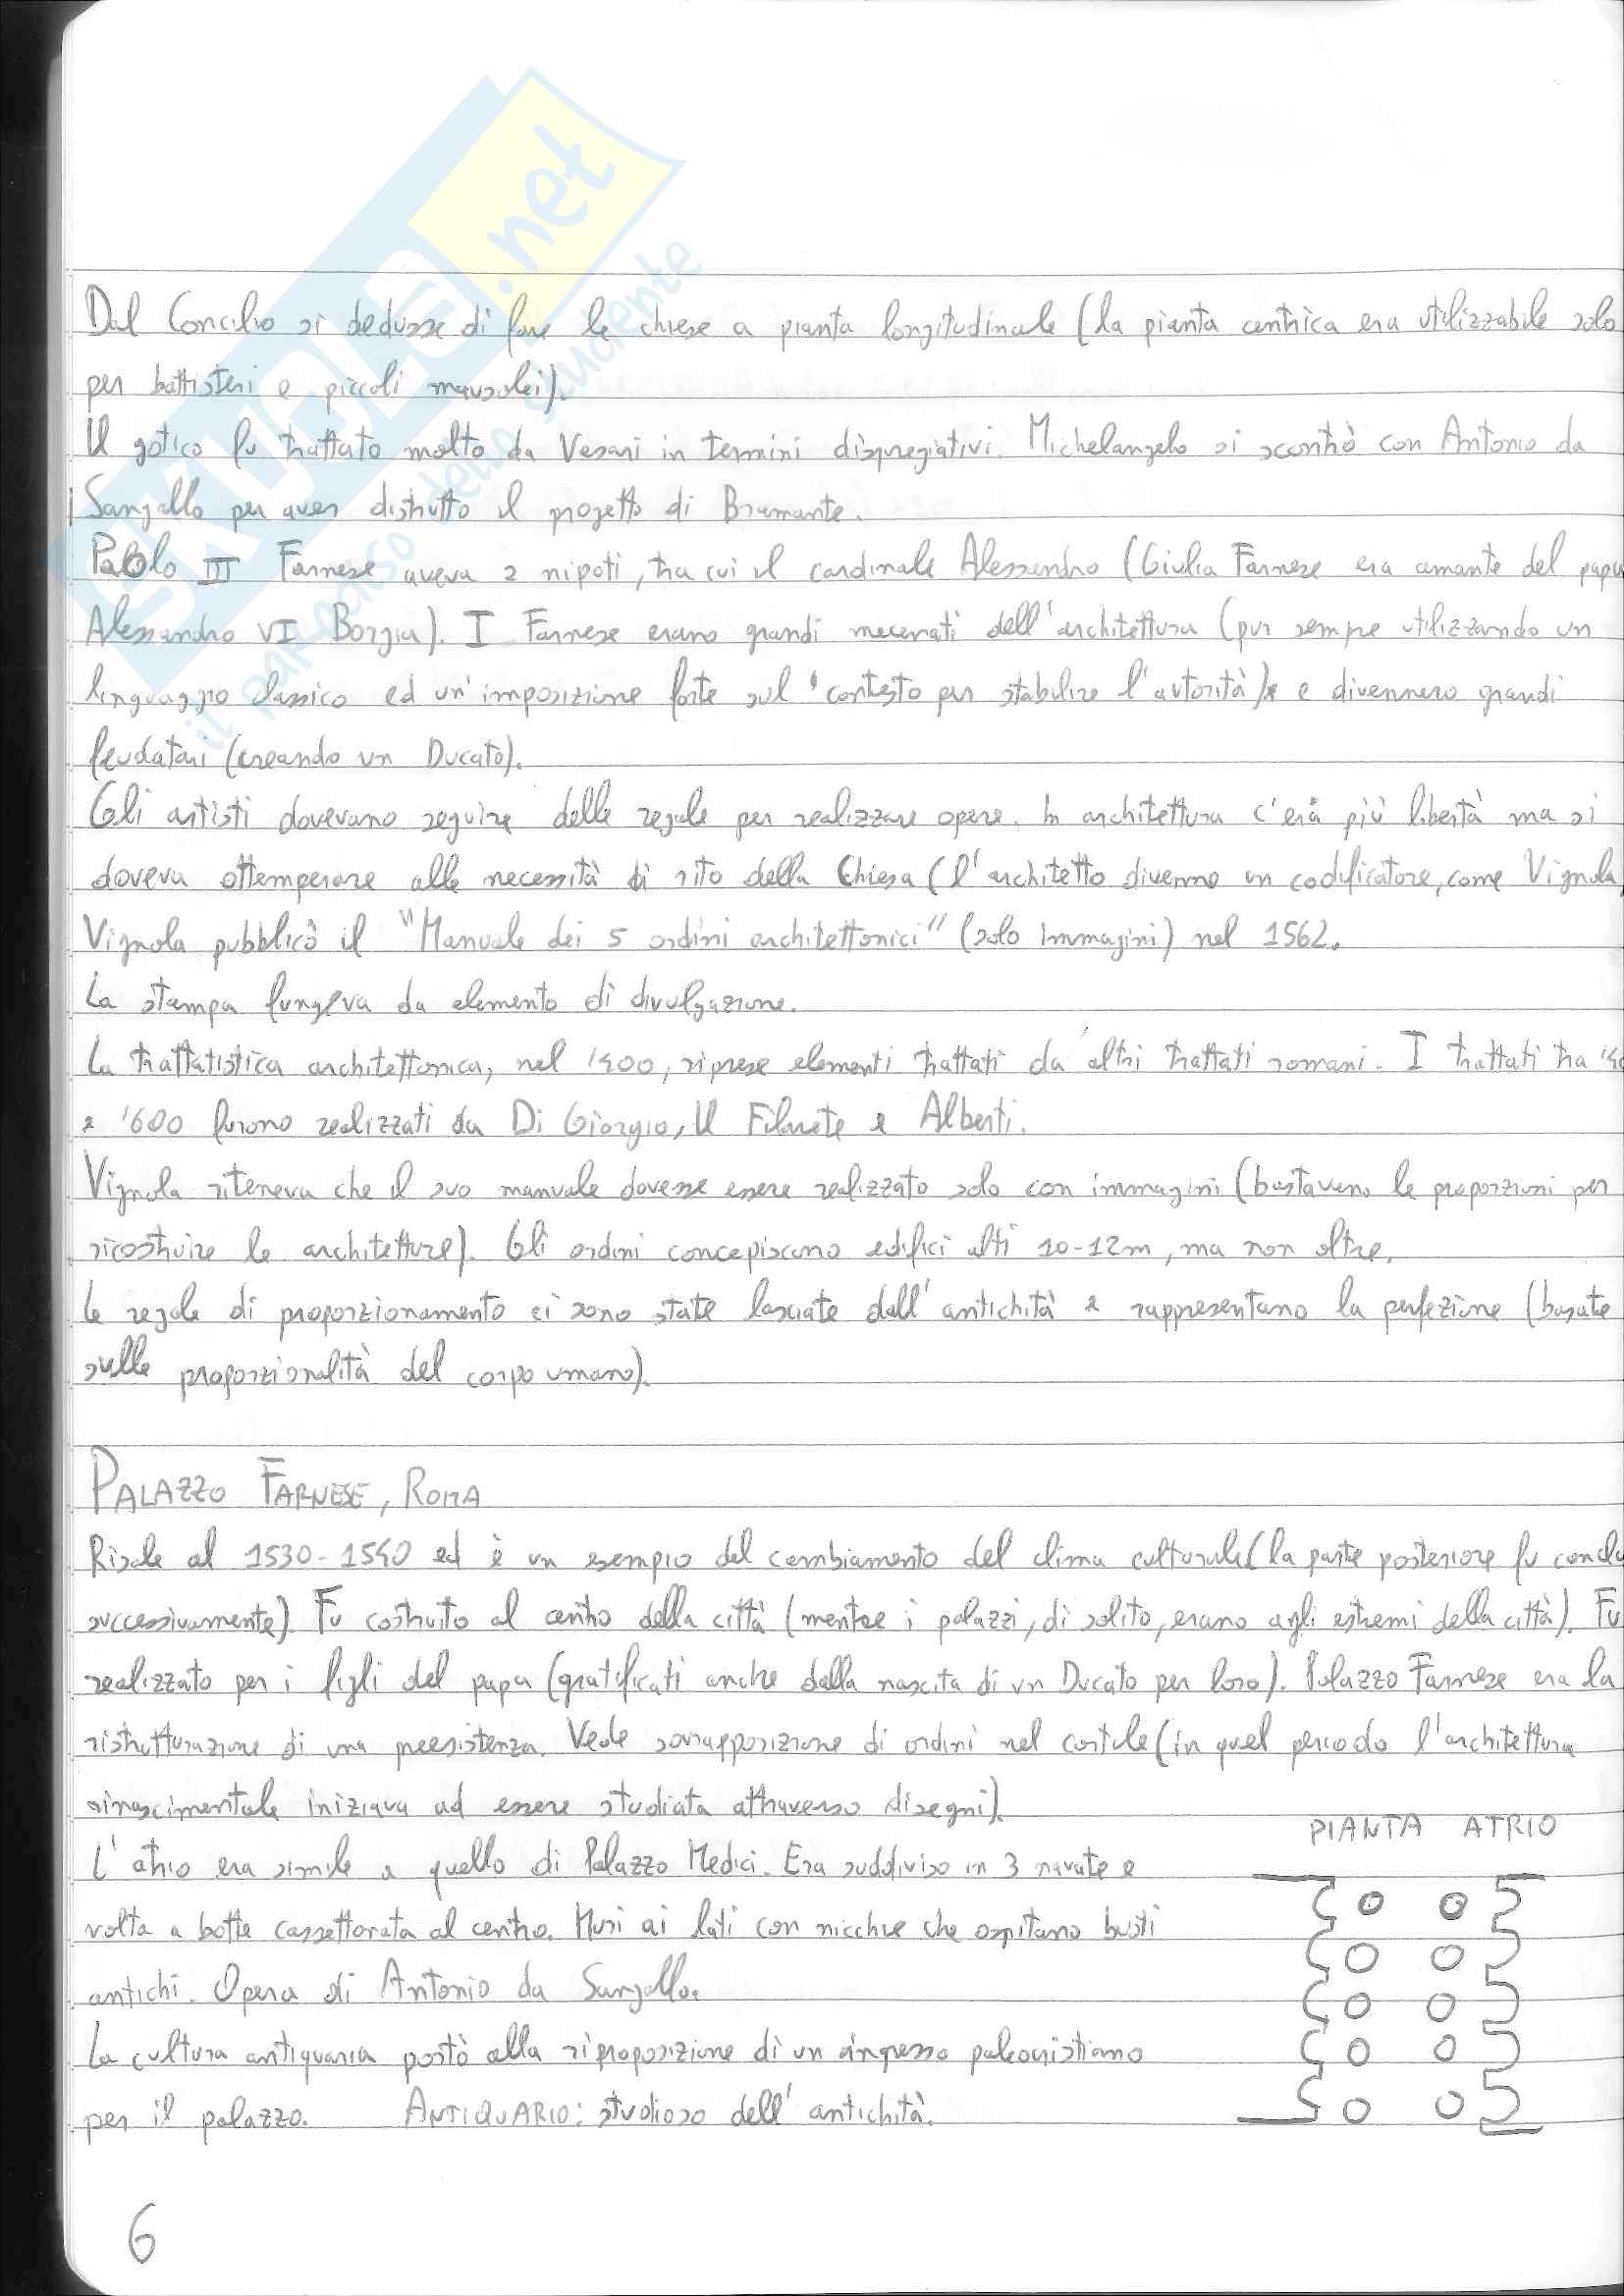 Dal Concilio si dedusse di fare le chiese a pianta longitudinale (la pianta centrica era utilizzabile solo
per battisteri e piccoli mausolei).
Il gotico fu trattato molto da Vasari in termini dispregiativi. Michelangelo si scontrò con Antonio da
Sangallo per aver distrutto il progetto di Bramante.
Paolo III Farnese aveva 2 nipoti, tra cui il cardinale Alessandro (Giulia Farnese era amante del papa
Alessandro VI Borgia). I Farnese erano grandi mecenati dell'architettura (pur sempre utilizzando un
linguaggio classico ed un'imposizione forte sul contesto per stabilire l'autorità) e divennero grandi
feudatari (creando un Ducato).
Gli artisti dovevano seguire delle regole per realizzare opere. In architettura c'era più libertà ma si
doveva ottemperare alle necessità di rito della Chiesa (l'architetto divenne un codificatore, come Vignola
Vignola pubblicò il "Manuale dei 5 ordini architettonici" (solo immagini) nel 1562.
La stampa fungeva da elemento di divulgazione.
La trattatistica architettonica, nel '400, riprese elementi trattati da altri trattati romani. I trattati tra '4
e '600 furono realizzati da Di Giorgio, Il Filarete e Alberti.
Vignola riteneva che il suo manuale dovesse essere realizzato solo con immagini (bastavano le proporzioni per
ricostruire le architetture). Gli ordini concepiscono edifici alti 10-12m, ma non oltre.
Le regole di proporzionamento ci sono state lasciate dall'antichità e rappresentano la perfezione (basate
sulle proporzionalità del corpo umano).
PALAZZO FARNESE, ROMA
Risale al 1530-1540 ed è un esempio del cambiamento del clima culturale (la parte posteriore fu conclu
successivamente). Fu costruito al centro della città (mentre i palazzi, di solito, erano agli estremi della città). Fu
realizzato per i figli del papa (gratificati anche dalla nascita di un Ducato per loro). Palazzo Farnese era la
ristrutturazione di una preesistenza. Vede sovrapposizione di ordini nel cortile (in quel periodo l'architettura
rinascimentale iniziava ad essere studiata attraverso disegni).
PIANTA ATRIO
L'atrio era simile a quello di Palazzo Medici. Era suddiviso in 3 navate e
volta a botte cassettonata al centro. Muri ai lati con nicchie che ospitano busti
antichi. Opera di Antonio da Sangallo.
La cultura antiquaria portò alla riproposizione di un ingresso paleocristiano
per il palazzo. ANTIQUARIO: studioso dell'antichità.
6
SKUOLA.net
il paradiso dello studente